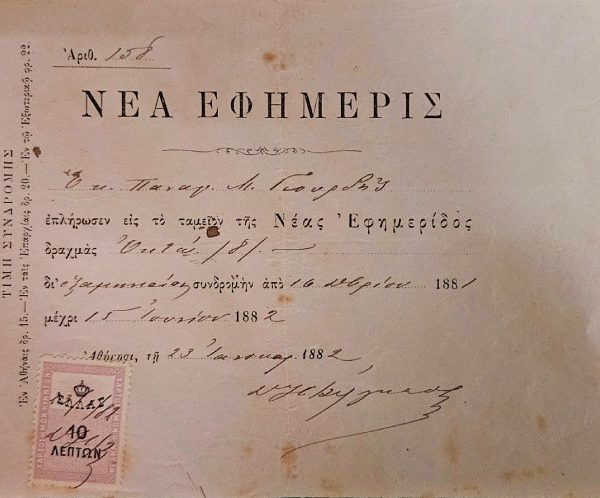 Ἀριθ. 158
ΝΕΑ ΕΦΗΜΕΡΙΣ
Ὁ κ. Παναγ. Μ.
ἐπλήρωσεν εἰς τὸ ταμεῖον τῆς Νέας Ἐφημερίδος
δραχμὰς Ὀκτώ /8/
δι' ἑξαμηνιαίαν συνδρομὴν ἀπὸ 16 1881
μέχρι 15 Ἰουνίου 1882
Ἀθήνησι, τῇ 23 Ἰανουαρ. 1882
ΤΙΜΗ ΣΥΝΔΡΟΜΗΣ
Ἐν Ἀθήναις δρ. 15.—Ἐν ταῖς Ἐπαρχίαις δρ. 20.—Ἐν τῷ Ἐξωτερικῷ φρ. 22.
ΕΛΛΑΣ
10
ΛΕΠΤΩΝ